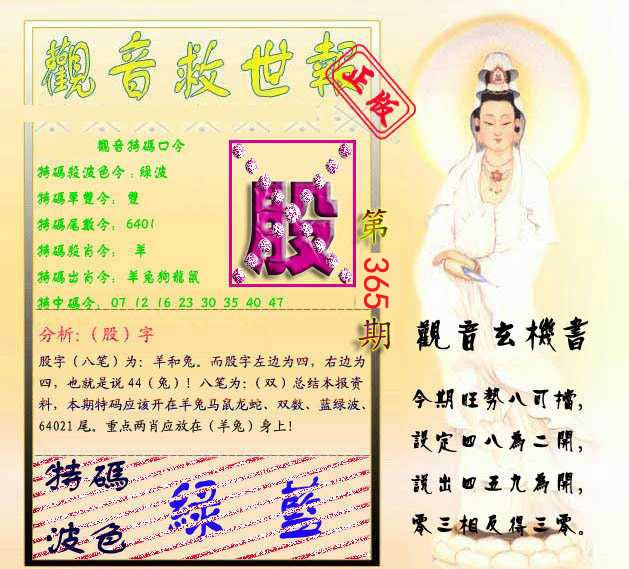 觀音救世報
正版
觀音特碼口令
特碼殺波色令：綠波
特碼單雙令： 雙
特碼尾數令： 6401
特碼殺肖令： 羊
特碼出肖令： 羊兔狗龍鼠
特中碼令： 07 12 16 23 30 35 40 47
股
第365期
分析:（股）字
股字（八笔）为：羊和兔。而股字左边为四，右边为
四，也就是说 44（兔）！八笔为：（双）总结本报资
料，本期特码应该开在羊兔马鼠龙蛇、双数、蓝绿波、
64021 尾。重点两肖应放在（羊兔）身上！
特碼
波色
綠 藍
觀音玄機書
今期旺勢八可擋，
設定四八為二開，
說出四五九為開，
零三相反得三零。